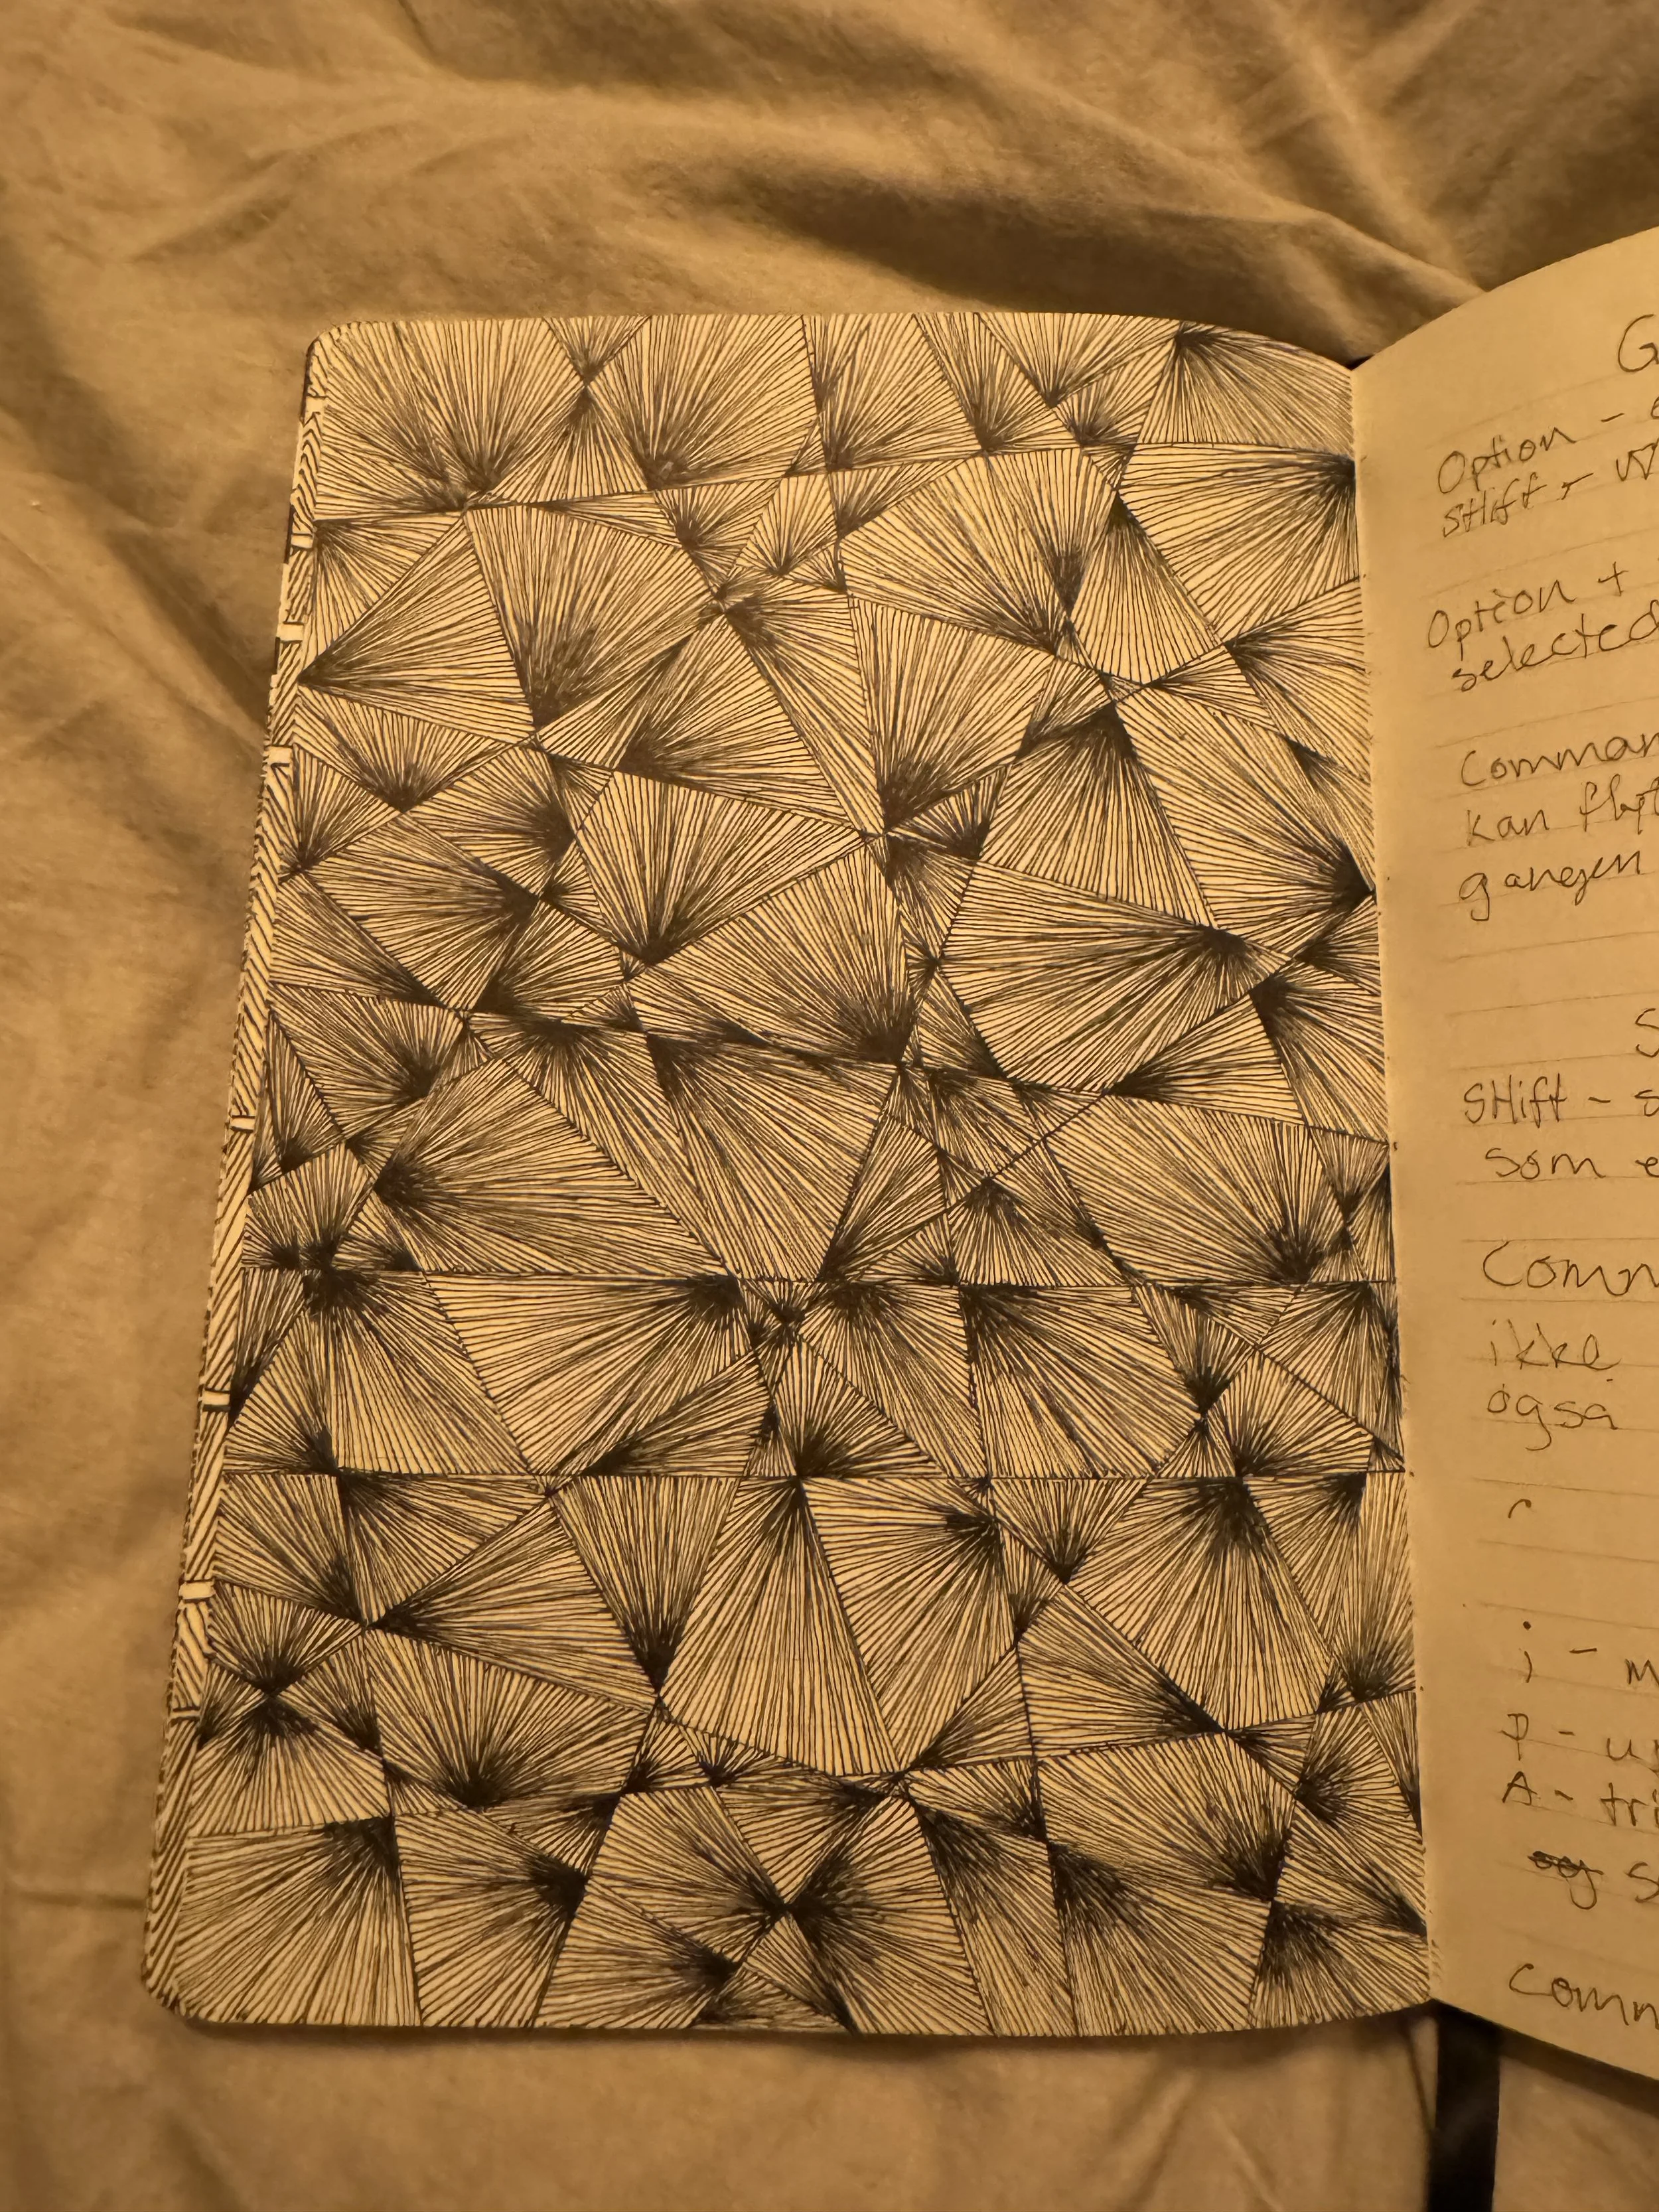 G
Option -
SHift - V
Option +
selected
Comman
kan flyt
gangen
S
SHift - s
som e
Comm
ikke
også
i - m
P - u
A - tri
og s
comm